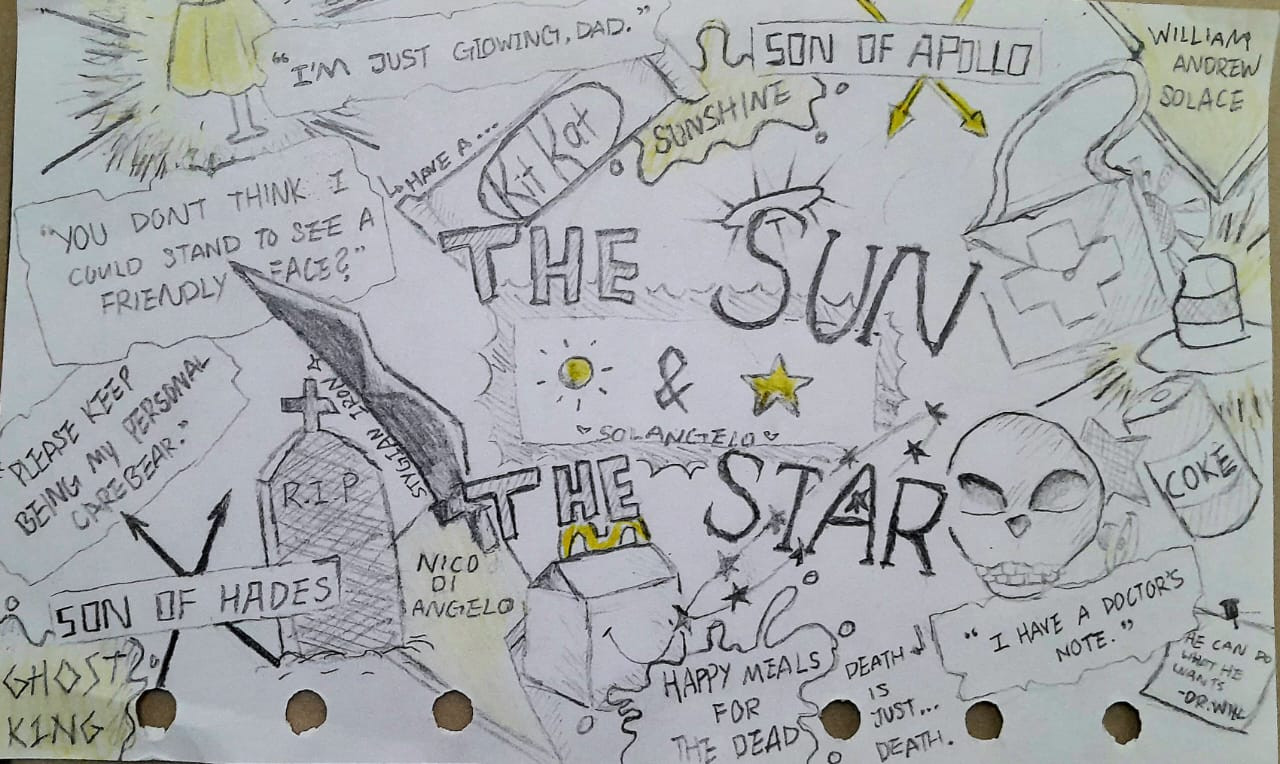 "I'M JUST GLOWING, DAD."
SON OF APOLLO
WILLIAM
ANDREW
SOLACE
SUNSHINE
HAVE A...
Kit Kat
"YOU DON'T THINK I
COULD STAND TO SEE A
FRIENDLY FACE?"
THE SUN
&
♡SOLANGELO♡
THE STAR
"PLEASE KEEP
BEING MY PERSONAL
CAREBEAR."
STYGIAN IRON
R.I.P
COKE
NICO
DI
ANGELO
SON OF HADES
GHOST
KING
HAPPY MEALS
FOR
THE DEAD
DEATH
IS
JUST...
DEATH.
"I HAVE A DOCTOR'S
NOTE."
HE CAN DO
WHAT HE
WANTS
-DR. WILL